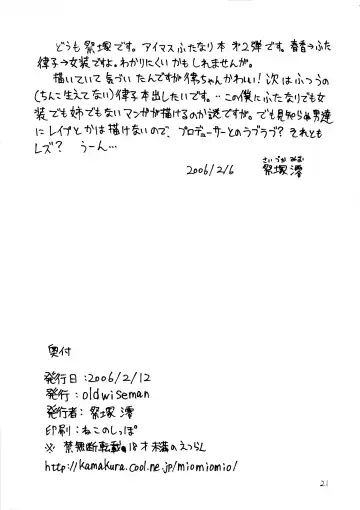 どうも祭塚です。アイマスふたなり本 第2弾です。春香→ふた
律子→女装ですよ。わかりにくいかもしれませんが。
描いていて気づいたんですが律ちゃんかわいい!次はふつうの
(ちんこ生えてない)律子本出したいです。‥この僕にふたなりでも女
装でも姉でもないマンガが描けるのか謎ですが。でも見知らぬ男達
にレイプとかは描けないので、プロデューサーとのラブラブ?それとも
レズ? うーん…
さいづか みお
2006/2/6 祭塚 澪
奥付
発行日:2006/2/12
発行:oldwiseman
発行者:祭塚 澪
印刷:ねこのしっぽ
※禁無断転載。18才未満のえつらん
http://kamakura.cool.ne.jp/miomiomio/
21